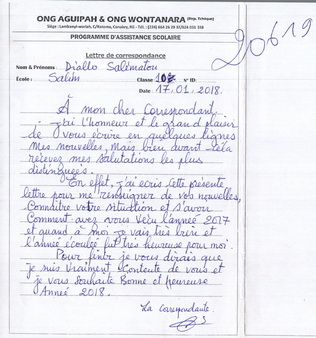 ONG AGUIPAH & ONG WONTANARA (Rép. Guinée)
PROGRAMME D'ASSISTANCE SCOLAIRE
20619
Lettre de correspondance
Nom & Prénoms : Diallo Salématou
École : Salim Classe 10è N° ID:
Date : 17.01.2018.
À mon cher Correspondant
J'ai l'honneur et le grand plaisir
de vous écrire en quelques lignes
mes nouvelles, mais bien avant cela
recevez mes salutations les plus
distinguées.
En effet, j'ai écris cette présente
lettre pour me renseigner de vos nouvelles,
Connaitre votre situation et savoir
Comment avez vous vécu l'année 2017
et quand à moi je vais très bien et
l'année écoulée fut très heureuse pour moi.
Pour finir je vous dirais que
je suis vraiment contente de vous et
je vous souhaite Bonne et heureuse
Année 2018.
La correspondante